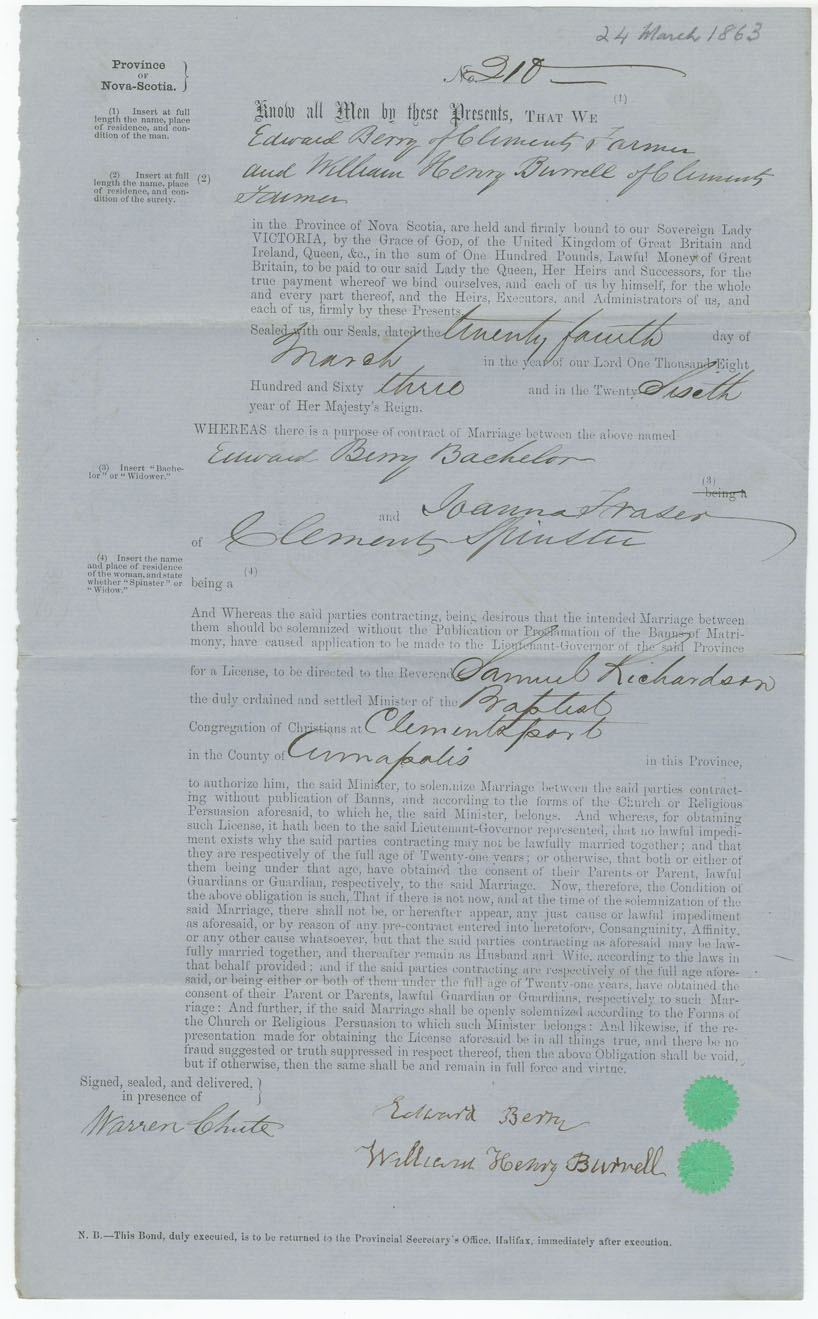 24 March 1863
Province
OF
Nova-Scotia.
No. 210
(1) Insert at full
length the name, place
of residence, and con-
dition of the man.
(1)
Know all Men by these Presents, THAT WE
Edward Berry of Clements Farmer
(2) Insert at full
length the name, place
of residence, and con-
dition of the surety.
(2)
and William Henry Burrell of Clements
Farmer
in the Province of Nova Scotia, are held and firmly bound to our Sovereign Lady
VICTORIA, by the Grace of GOD, of the United Kingdom of Great Britain and
Ireland, Queen, &c., in the sum of One Hundred Pounds, Lawful Money of Great
Britain, to be paid to our said Lady the Queen, Her Heirs and Successors, for the
true payment whereof we bind ourselves, and each of us by himself, for the whole
and every part thereof, and the Heirs, Executors, and Administrators of us, and
each of us, firmly by these Presents.
Sealed with our Seals, dated the twenty fourth day of
March in the year of our Lord One Thousand Eight
Hundred and Sixty three and in the Twenty Sixth
year of Her Majesty's Reign.
WHEREAS there is a purpose of contract of Marriage between the above named
Edward Berry Bachelor
(3) Insert "Bache-
lor" or "Widower."
(3)
being a
and Joanna Fraser
of Clements Spinster
(4) Insert the name
and place of residence
of the woman, and state
whether "Spinster" or
"Widow."
(4)
being a
And Whereas the said parties contracting, being desirous that the intended Marriage between
them should be solemnized without the Publication or Proclamation of the Banns of Matri-
mony, have caused application to be made to the Lieutenant-Governor of the said Province
for a License, to be directed to the Reverend Samuel Richardson
the duly ordained and settled Minister of the Baptist
Congregation of Christians at Clementsport
in the County of Annapolis in this Province,
to authorize him, the said Minister, to solemnize Marriage between the said parties contract-
ing without publication of Banns, and according to the forms of the Church or Religious
Persuasion aforesaid, to which he, the said Minister, belongs. And whereas, for obtaining
such License, it hath been to the said Lieutenant-Governor represented, that no lawful impedi-
ment exists why the said parties contracting may not be lawfully married together; and that
they are respectively of the full age of Twenty-one years; or otherwise, that both or either of
them being under that age, have obtained the consent of their Parents or Parent, lawful
Guardians or Guardian, respectively, to the said Marriage. Now, therefore, the Condition of
the above obligation is such, That if there is not now, and at the time of the solemnization of the
said Marriage, there shall not be, or hereafter appear, any just cause or lawful impediment
as aforesaid, or by reason of any pre-contract entered into heretofore, Consanguinity, Affinity,
or any other cause whatsoever, but that the said parties contracting as aforesaid may be law-
fully married together, and thereafter remain as Husband and Wife, according to the laws in
that behalf provided; and if the said parties contracting are respectively of the full age afore-
said, or being either or both of them under the full age of Twenty-one years, have obtained the
consent of their Parent or Parents, lawful Guardian or Guardians, respectively to such Mar-
riage: And further, if the said Marriage shall be openly solemnized according to the Forms of
the Church or Religious Persuasion to which such Minister belongs: And likewise, if the re-
presentation made for obtaining the License aforesaid be in all things true, and there be no
fraud suggested or truth suppressed in respect thereof, then the above Obligation shall be void,
but if otherwise, then the same shall be and remain in full force and virtue.
Signed, sealed, and delivered,
in presence of
Warren Chute
Edward Berry
William Henry Burrell
N. B.—This Bond, duly executed, is to be returned to the Provincial Secretary's Office, Halifax, immediately after execution.